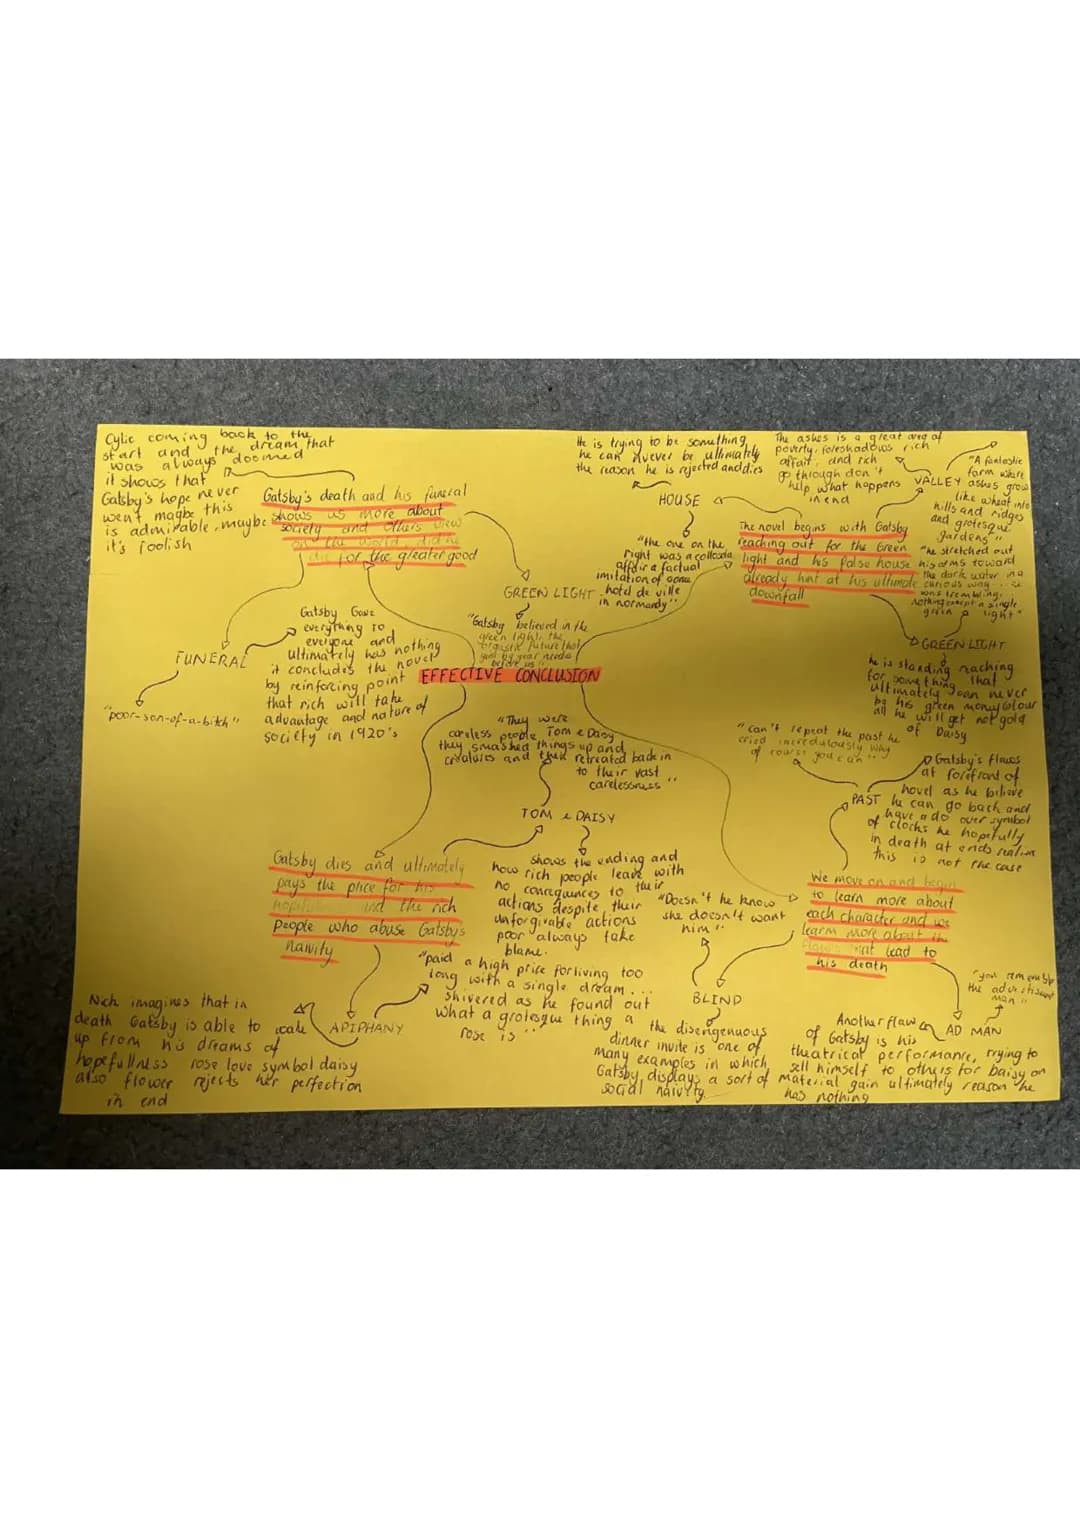 Cylic coming back to the
start and the dream that
was always doomed
it shows that
Gatsby's hope never
went maybe this
is admirable, maybe
it's foolish
Gatsby's death and his funeral
shows us more about
society and others view
on the world, did he
die for the greater good
GREEN LIGHT
"Gatsby believed in the
green light, the
orgastic future that
year by year
before us"
FUNERAL
"poor-son-of-a-bitch"
Gatsby Gave
everything to
everyone and
ultimately has nothing
it concludes the novel
by reinforcing point
that rich will take
advantage and nature of
society in 1920's
EFFECTIVE CONCLUSION
He is trying to be something
he can never be ultimately
the reason he is rejected and dies
HOUSE
"the one on the
right was a colossal
affair a factual
imitation of some
hotel de ville
in normandy"
The novel begins with Gatsby
reaching out for the Green
light and his false house
already hint at his ultimate
downfall
The ashes is a great area of
poverty, foreshadows rich
affair, and rich
go through don't
help what happens
in end
VALLEY
"A fantastic
farm where
ashes grow
like wheat into
hills and ridges
and grotesque
gardens"
"he stretched out
his arms toward
the dark water in a
curious way ...
was trembling.
nothing except a single
green light"
GREEN LIGHT
he is standing reaching
for something that
ultimately can never
be his green money colour
all he will get not gold
of Daisy
"They were
careless people Tom & Daisy
they smashed things up and
creatures and then retreated back in
to their vast
carelessness"
TOM & DAISY
shows the ending and
how rich people leave with
no consequences to their
actions despite their
unforgivable actions
poor always take
blame.
Gatsby dies and ultimately
pays the price for his
and the rich
people who abuse Gatsby's
naivity
APIPHANY
"paid a high price for living too
long with a single dream...
shivered as he found out
what a grotesque thing a
rose is"
Nick imagines that in
death Gatsby is able to wake
up from his dreams of
hopefullness rose love symbol daisy
also flower rejects her perfection
in end
"can't repeat the past he
cried incredulously why
of course you can"
PAST
Gatsby's flaws
at forefront of
novel as he believe
he can go back and
have a do over symbol
of clocks he hopefully
in death at ends realise
this is not the case
We move on and begin
to learn more about
each character and we
learn more about the
flaws that lead to
his death
"Doesn't he know
she doesn't want
him"
BLIND
the disengenuous
dinner invite is one of
many examples in which
Gatsby displays a sort of
social naivty.
AD MAN
the advertisement
man"
Another flaw
of Gatsby is his
theatrical performance, trying to
sell himself to others for Daisy on
material gain ultimately reason he
has nothing